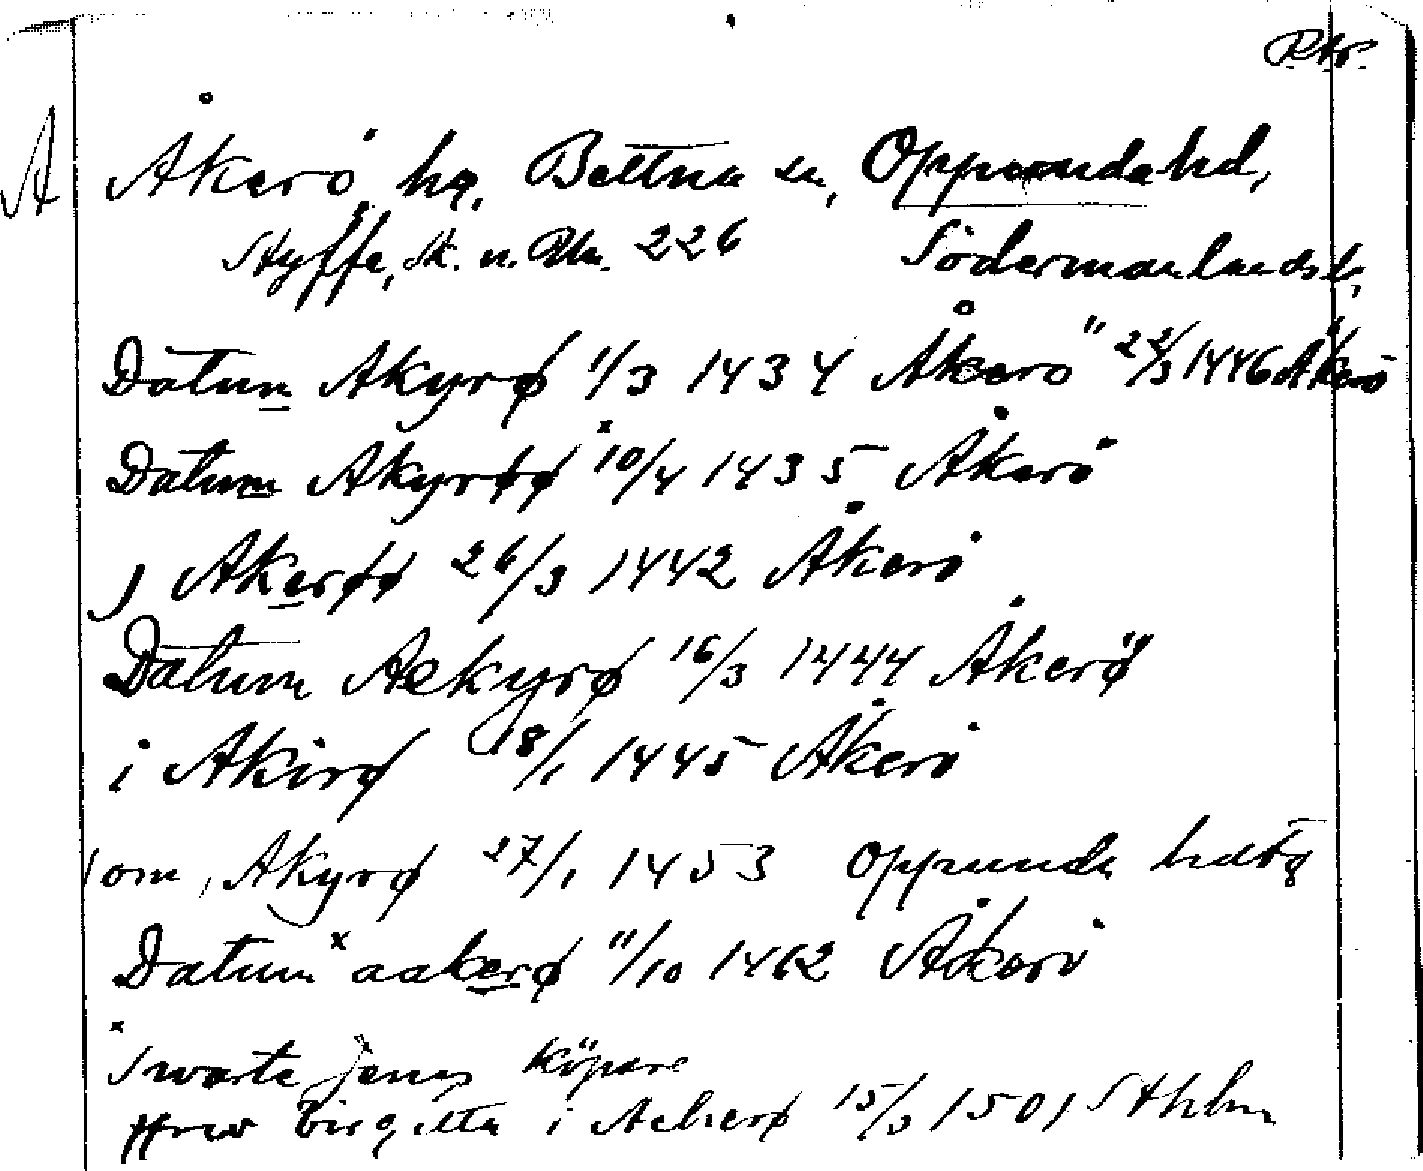 Rtr.
A
Åkerö hg, Bettna sn, Oppunda hd,
Styffe, Sk. u. Un. 226 Södermanlands l,
Datum Akyrø 1/3 1434 Åkerö 22/3 1446 Åkerö
Datum Akyrøø 10/4 1435 Åkerö
j Akerøø 26/3 1442 Åkerö
Datum Aekyrø 16/3 1444 Åkerö
i Akirø 18/1 1445 Åkerö
om, Akyrø 27/1 1453 Oppunda hdtg
Datum x aakerø 11/10 1462 Åkerö
x Swarte Jenes köpare
Hrw Birgitta i Ackerø 15/3 1501 Sthlm